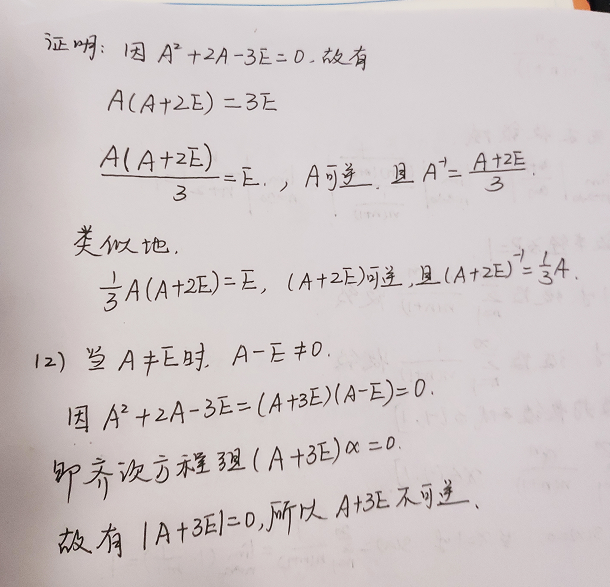 证明: 因 A²+2A-3E=0. 故有
A(A+2E)=3E
A(A+2E)/3=E., A可逆. 且 A⁻¹=(A+2E)/3.
类似地.
1/3 A(A+2E)=E, (A+2E)可逆,且(A+2E)⁻¹=1/3 A.
12) 当 A≠E时. A-E≠0.
因 A²+2A-3E=(A+3E)(A-E)=0.
即齐次方程组(A+3E)α=0.
故有 |A+3E|=0,所以 A+3E 不可逆.